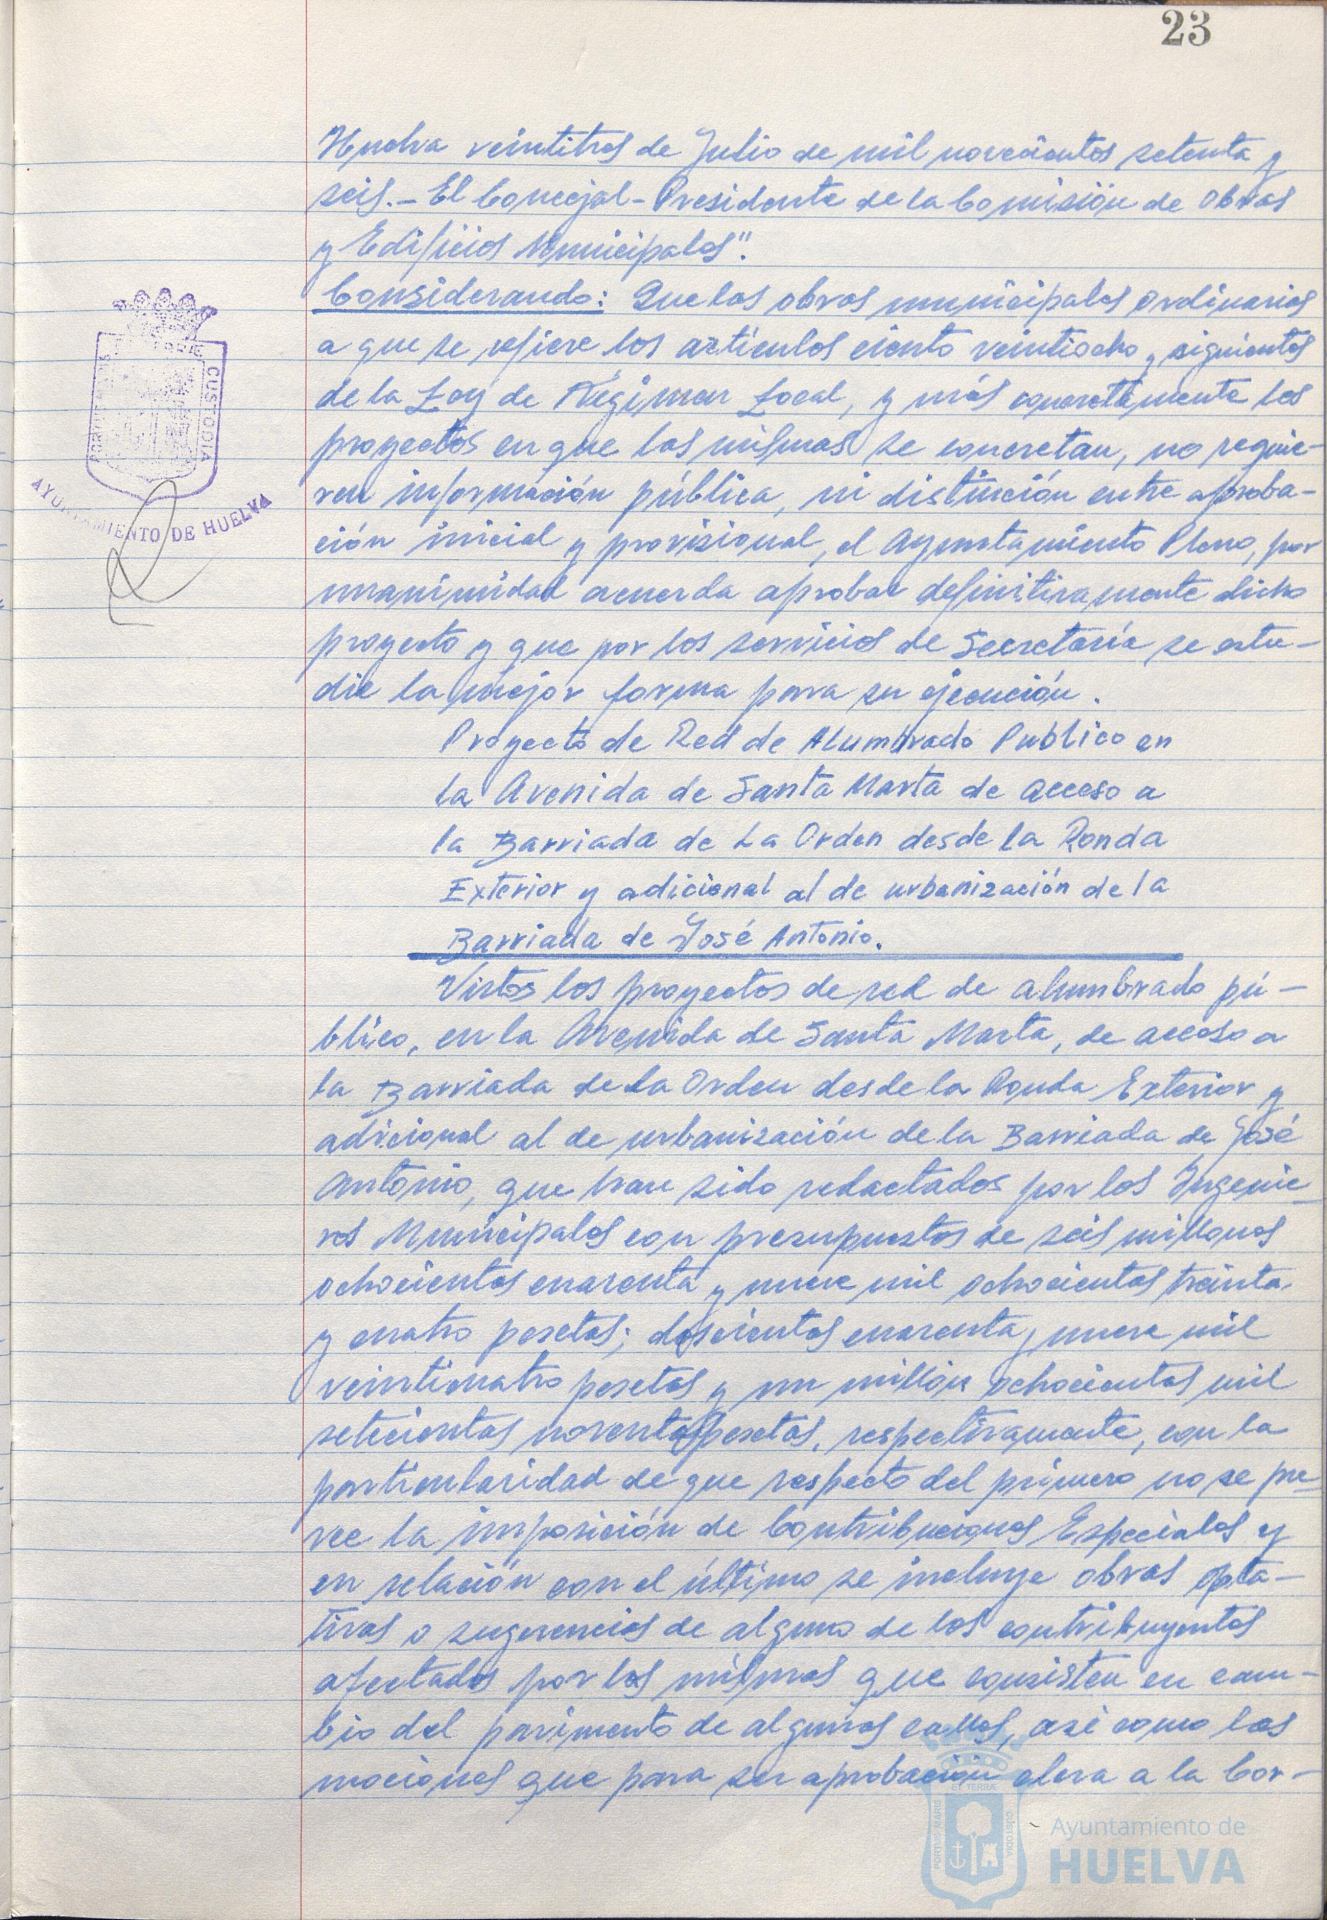 23
Huelva veintitres de Julio de mil novecientos setenta y
seis.- El Concejal-Presidente de la Comisión de Obras
y Edificios Municipales".
Considerando: Que las obras municipales ordinarias
a que se refiere los artículos ciento veintiocho y siguientes
de la Ley de Régimen Local, y más concretamente los
proyectos en que las mismas se concretan, no requie-
ren información pública, ni distinción entre aproba-
ción inicial y provisional, el Ayuntamiento Pleno, por
unanimidad acuerda aprobar definitivamente dicho
proyecto y que por los servicios de Secretaría se estu-
die la mejor forma para su ejecución.
Proyecto de Red de Alumbrado Publico en
la Avenida de Santa Marta de acceso a
la Barriada de La Orden desde la Ronda
Exterior y adicional al de urbanización de la
Barriada de José Antonio.
Vistos los proyectos de red de alumbrado pú-
blico, en la Avenida de Santa Marta, de acceso a
la Barriada de La Orden desde la Ronda Exterior y
adicional al de urbanización de la Barriada de José
Antonio, que han sido redactados por los Ingenie-
ros Municipales con presupuestos de seis millones
ochocientas cuarenta y nueve mil ochocientas treinta
y cuatro pesetas; doscientas cuarenta y nueve mil
veinticuatro pesetas y un millón ochocientas mil
setecientas noventa pesetas, respectivamente, con la
particularidad de que respecto del primero no se pre-
vee la imposición de Contribuciones Especiales y
en relación con el último se incluye obras opta-
tivas o sugerencias de alguno de los contribuyentes
afectados por las mismas que consisten en cam-
bio del pavimento de algunas calles, así como las
mociones que para su aprobación eleva a la Cor-
PORTUS MARIS
ET TERRÆ
CUSTODIA
AYUNTAMIENTO DE HUELVA
PORTUS MARIS
ET TERRÆ
CUSTODIA
Ayuntamiento de
HUELVA